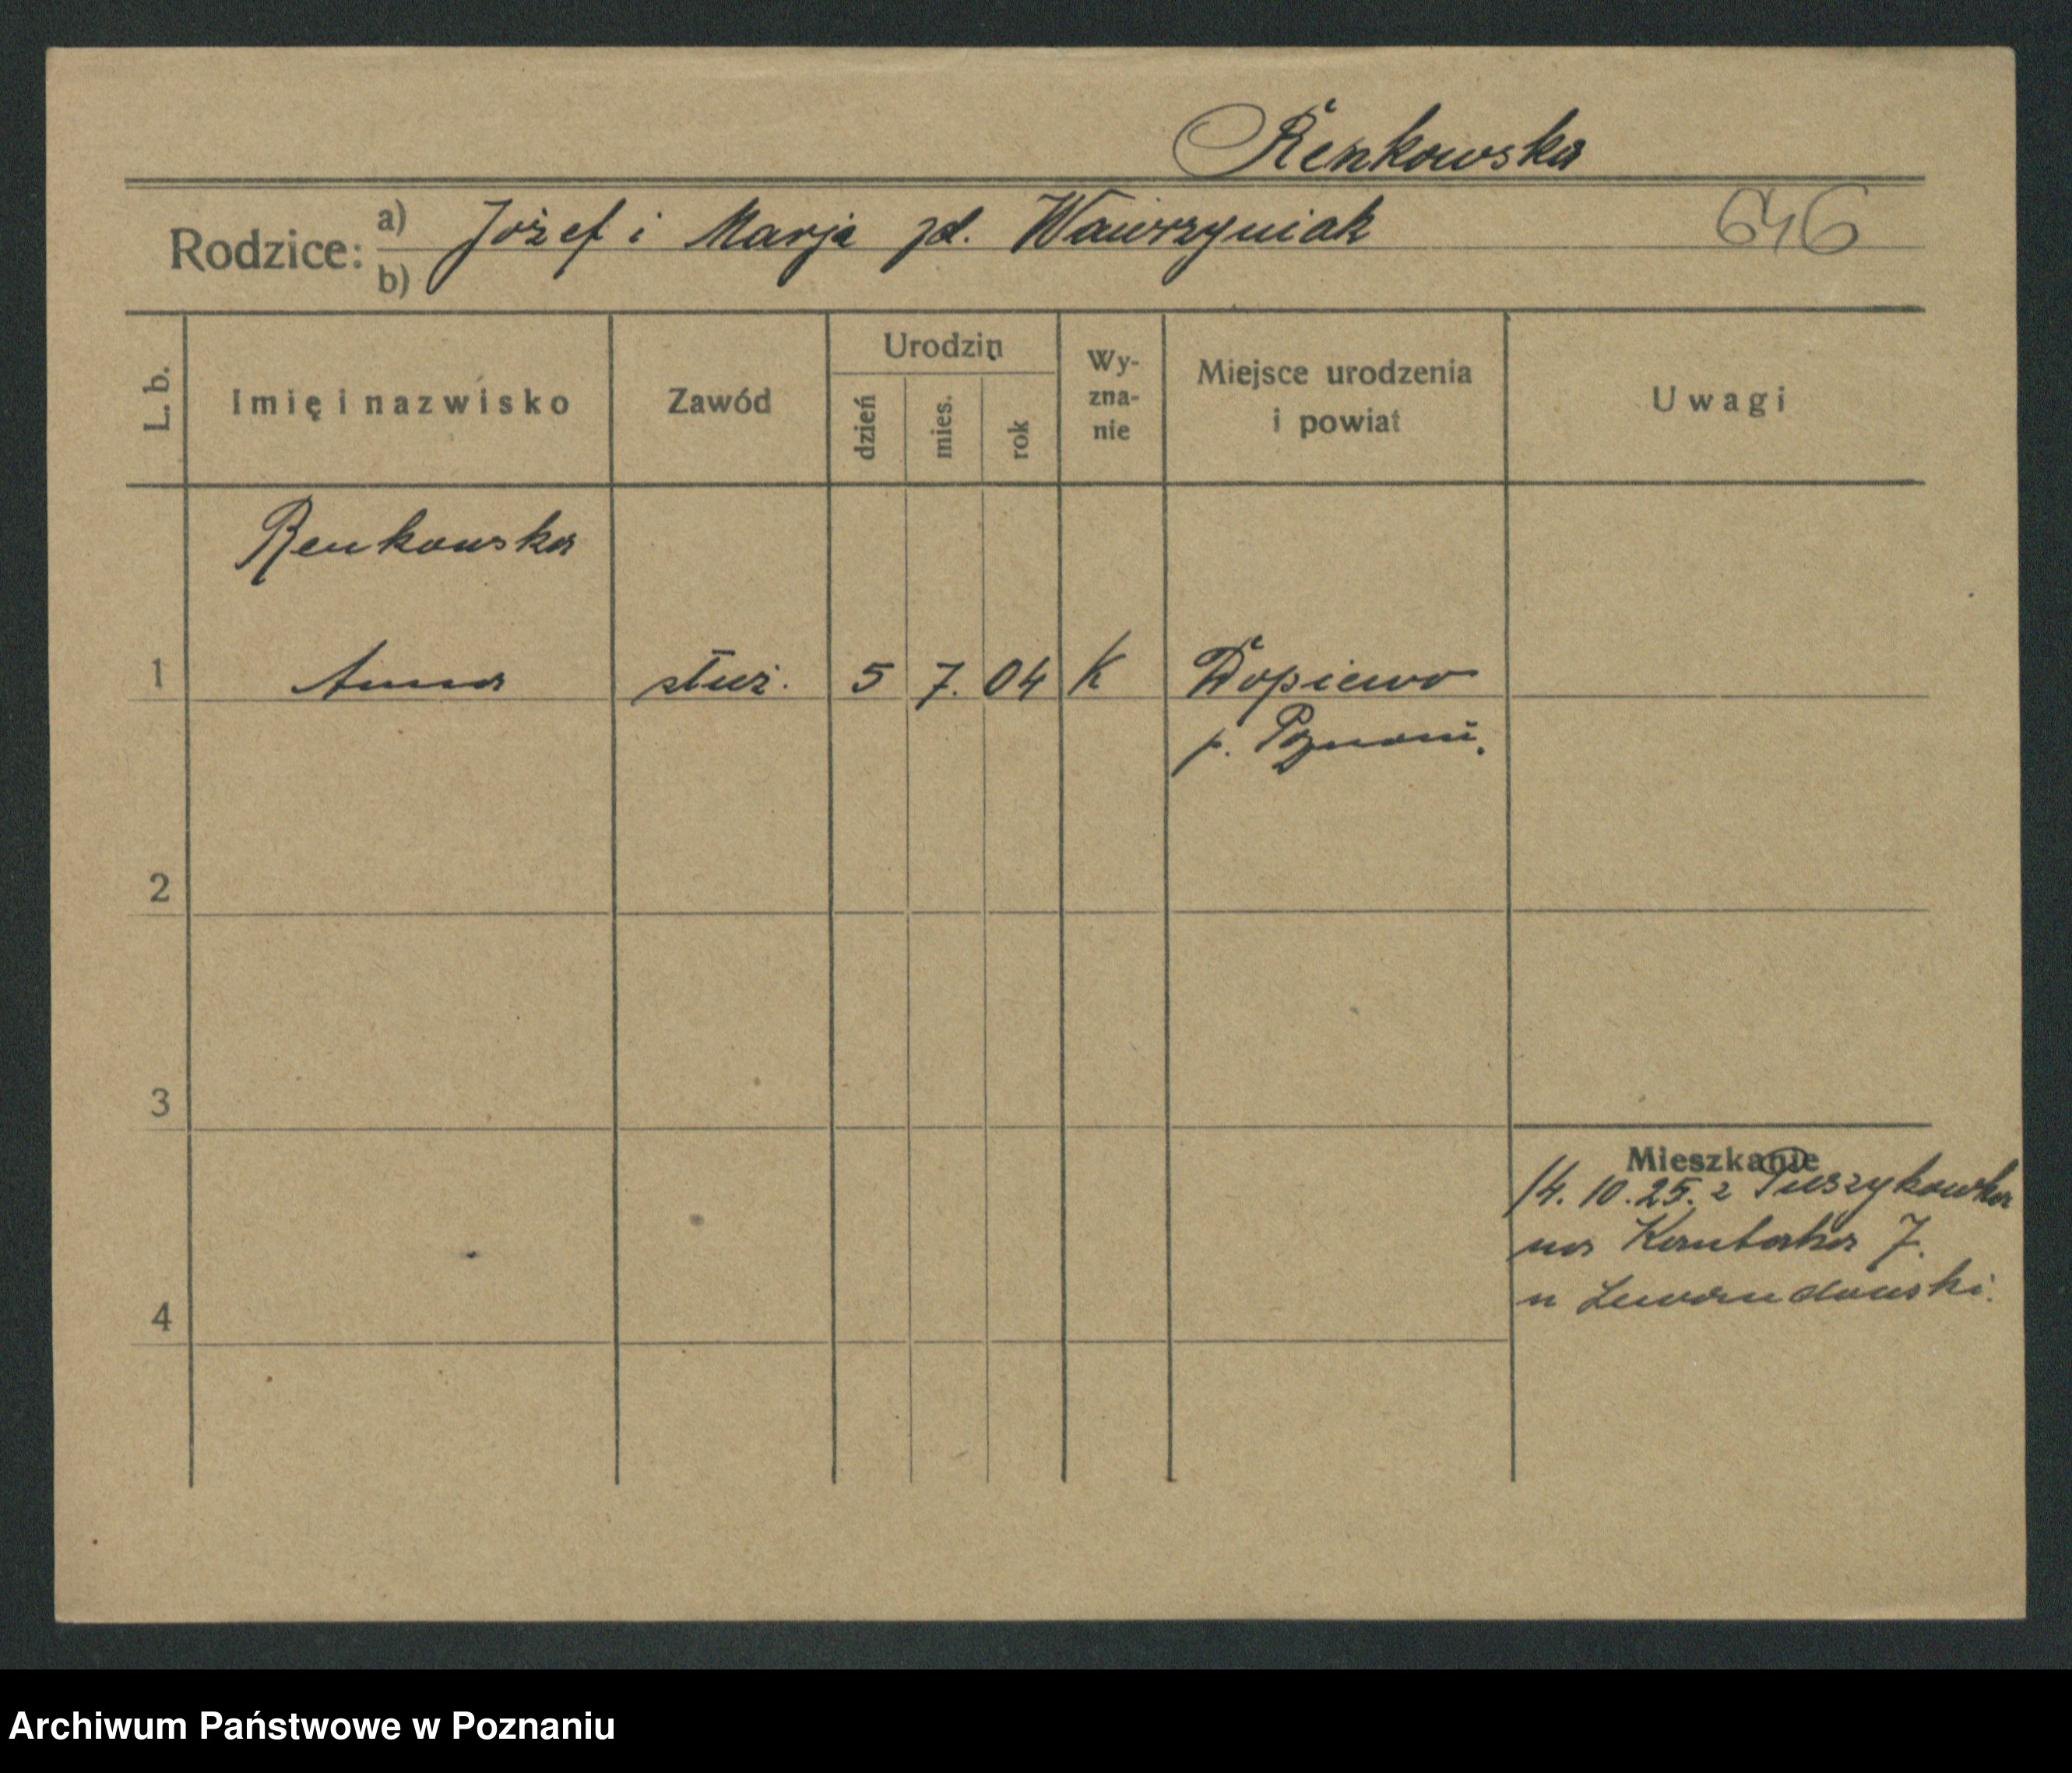 Renkowska
Rodzice: a) Józef i Marja zd. Wawrzyniak 646
b)
L. b. Imię i nazwisko Zawód Urodzin dzień mies. rok Wy-zna-nie Miejsce urodzenia i powiat Uwagi
Renkowska
1 Anna służ. 5 7. 04 K Dopiewo
p. Poznań.
2
3
Mieszkanie
14. 10. 25. z Puszczykowka
na Kantaka 7.
u Lewandowski.
4
Archiwum Państwowe w Poznaniu